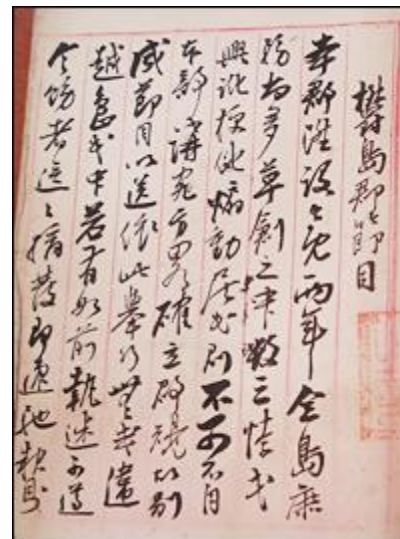 欝島郡節目
本郡陞設今旣兩年全島庶
務尙多草創之中數三悖民
興訛梗化煽動居民則不可不自
本部講究方略確立郡規故別
成節目以送依此擧行無或違
越爲㫆民中若有如前執迷不遵
令飭者這這摘發卽速馳報